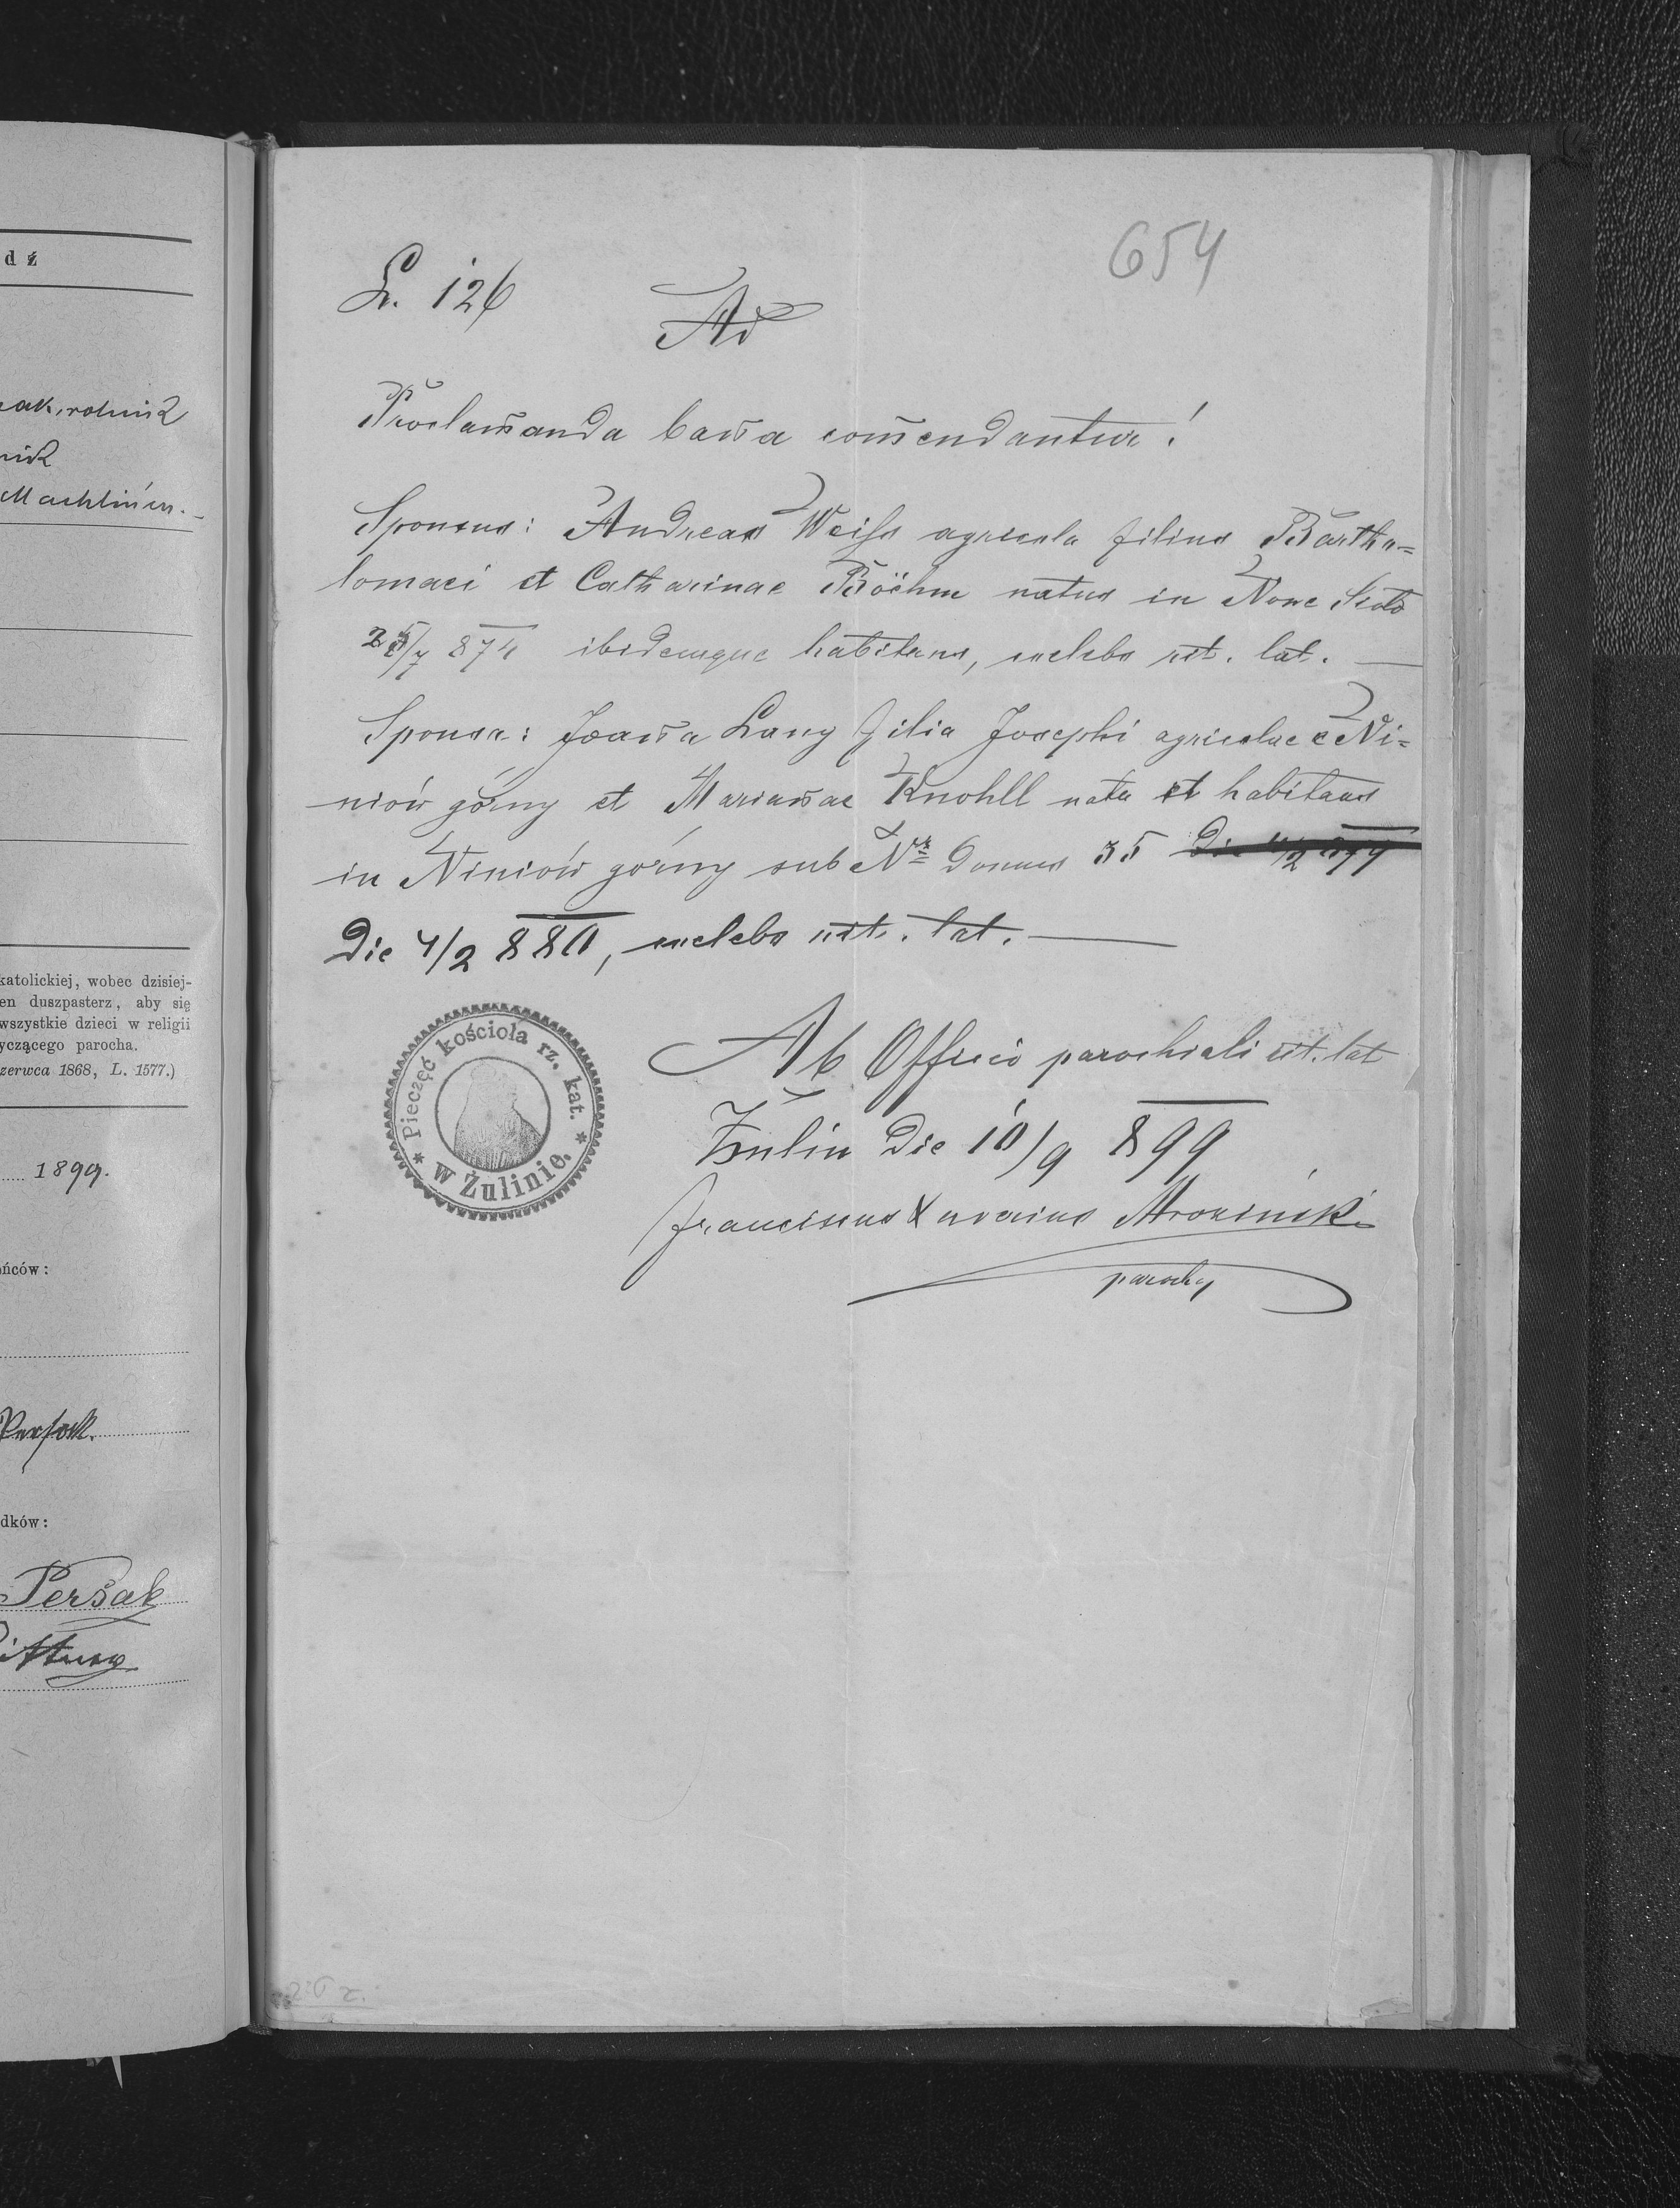 dź
ak, rolnik
nik
Machlińcu.
katolickiej, wobec dzisiej-
en duszpasterz, aby się
wszystkie dzieci w religii
yczącego parocha.
zerwca 1868, L. 1577.)
1899.
ńców:
dków:
Persak
654
L. 126
Ad
Proclam̄anda ban̄a com̄endantur!
Sponsus: Andreas Weiss agricola filius Bartho=
lomaei et Catharinae Böehm natus in Nowe Sioło
/7 874 ibidemque habitans, coelebs rit. lat. —
Sponsa: Joan̄a Lang filia Josephi agricolae e Ni=
niów górny et Marian̄ae Knohll nata et habitans
in Niniów górny sub Nr domus 35
die 4/2 880, coelebs rit. lat. —
Pieczęć kościoła rz. kat.
* w Żulinie. *
Ab Officio parochiali rit. lat
Żulin die 10/9 899
Franciscus Xaverius
parochus